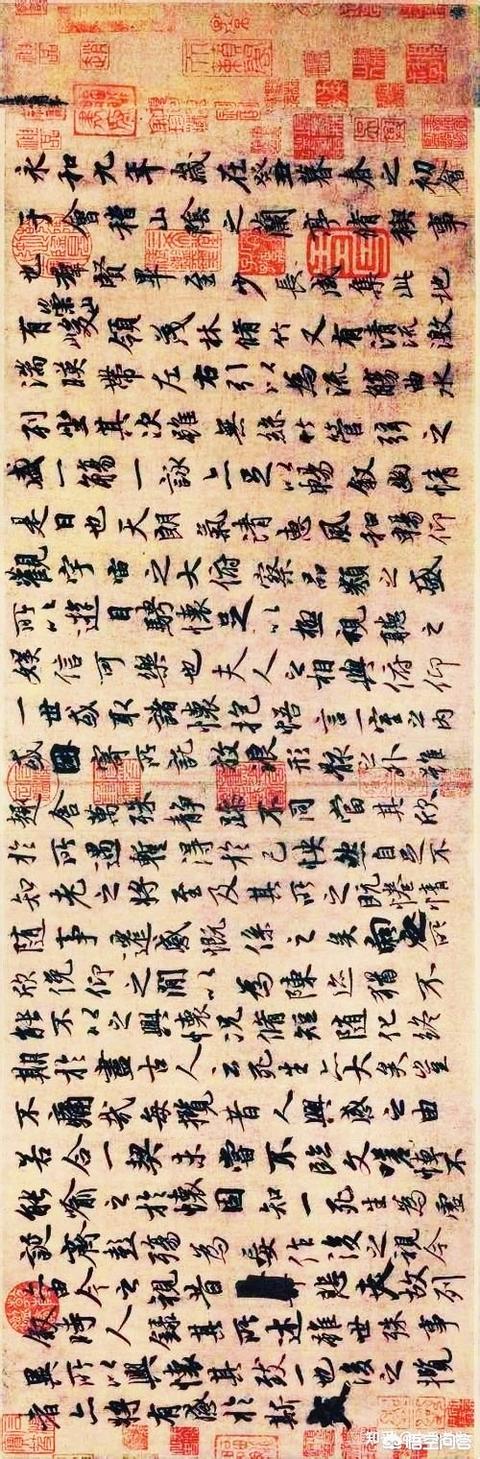 永和九年歲在癸丑暮春之初會
于會稽山陰之蘭亭脩禊事
也羣賢畢至少長咸集此地
有崇山峻領茂林脩竹又有清流激
湍暎帶左右引以為流觴曲水
列坐其次雖無絲竹管弦之
盛一觴一詠亦足以暢敘幽情
是日也天朗氣清惠風和暢仰
觀宇宙之大俯察品類之盛
所以遊目騁懷足以極視聽之
娛信可樂也夫人之相與俯仰
一世或取諸懷抱悟言一室之內
或因寄所託放浪形骸之外雖
趣舍萬殊靜躁不同當其欣
於所遇蹔得於己怏然自足不
知老之將至及其所之既惓情
隨事遷感慨係之矣向之所
欣俛仰之閒以為陳迹猶不
能不以之興懷況脩短隨化終
期於盡古人云死生亦大矣豈
不痛哉每攬昔人興感之由
若合一契未嘗不臨文嗟悼不
能喻之於懷固知一死生為虛
誕齊彭殤為妄作後之視今
亦由今之視昔悲夫故列
敘時人錄其所述雖世殊事
異所以興懷其致一也後之攬
者亦將有感於斯文
悟空问答